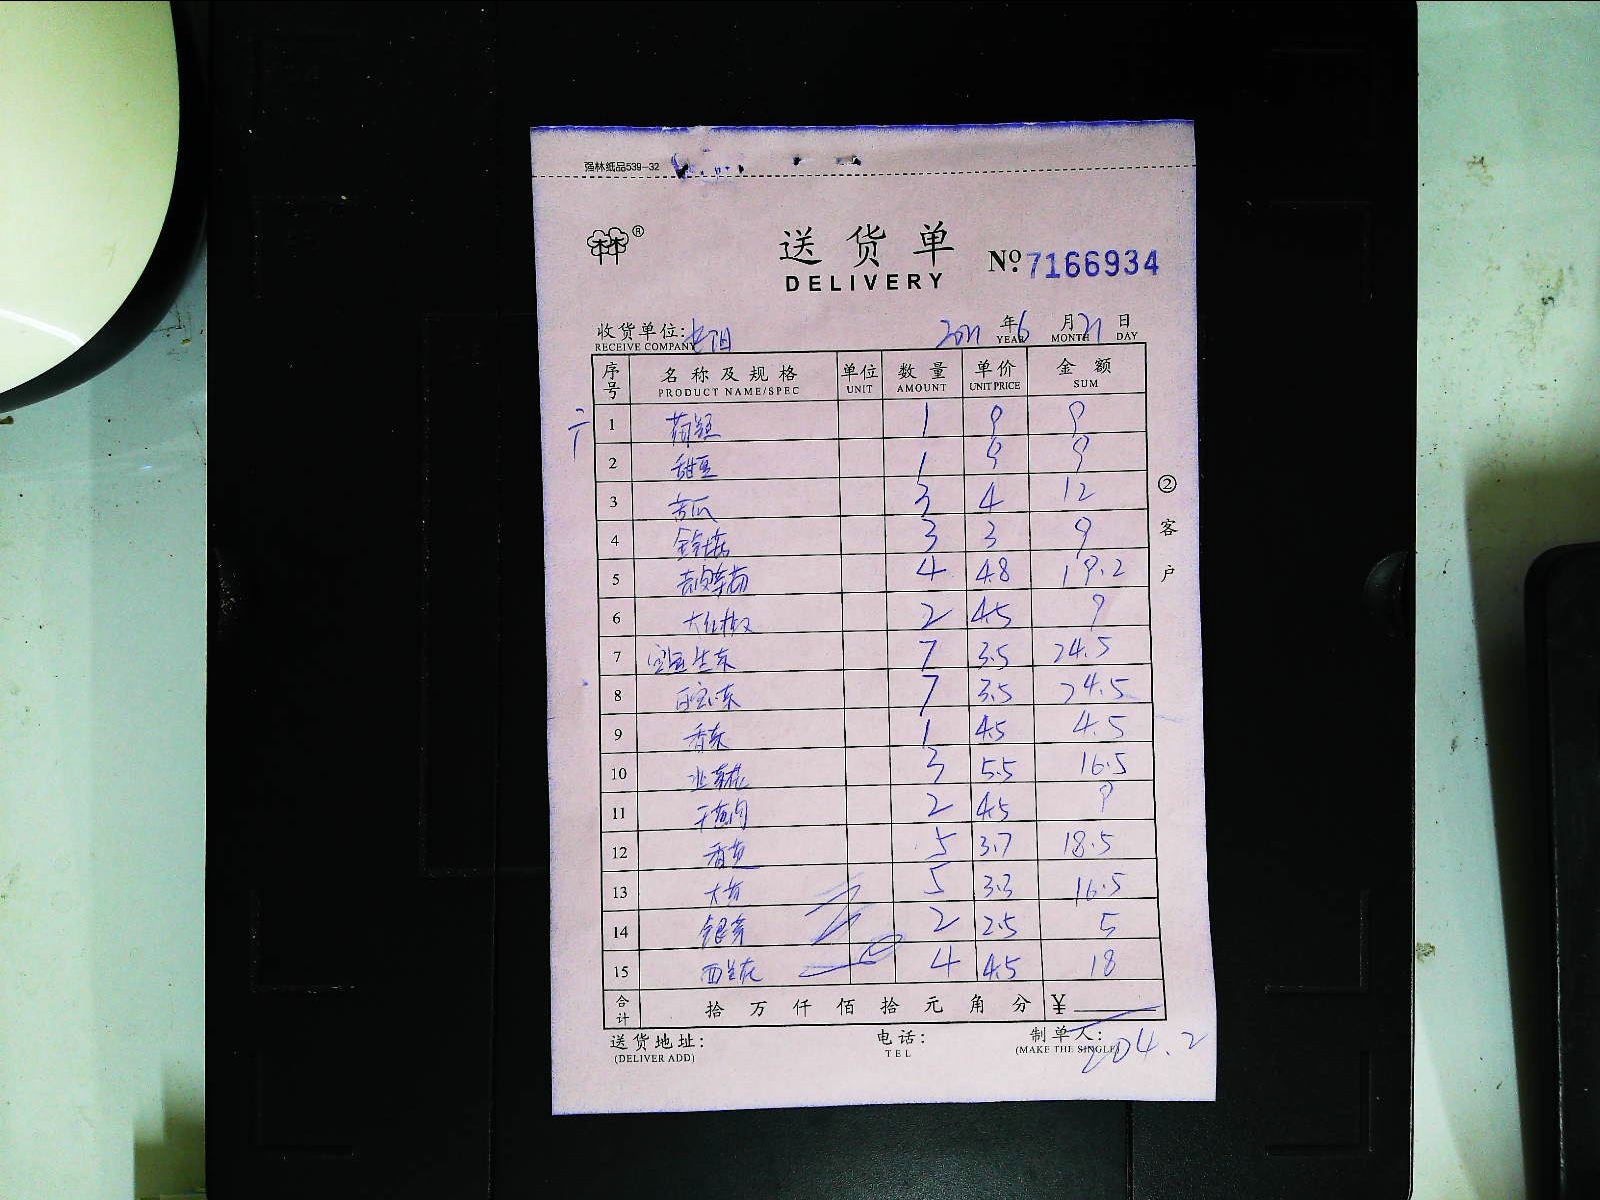 强林纸品539-32
林® 送货单 No.7166934
DELIVERY
收货单位: 2021 年 6 月 21 日
RECEIVE COMPANY YEAR MONTH DAY
序号 名称及规格 单位 数量 单价 金额
PRODUCT NAME/SPEC UNIT AMOUNT UNIT PRICE SUM
1 1 9 9
2 甜豆 1 9 9
3 苦瓜 3 4 12
4 3 3 9
5 4 4.8 19.2
6 大红椒 2 4.5 9
7 7 3.5 24.5
8 7 3.5 24.5
9 香菜 1 4.5 4.5
10 韭菜花 3 5.5 16.5
11 2 4.5 9
12 5 3.7 18.5
13 5 3.3 16.5
14 银芽 2 2.5 5
15 西兰花 4 4.5 18
合计 拾 万 仟 佰 拾 元 角 分 ¥
204.2
送货地址: 电话: 制单人:
(DELIVER ADD) TEL (MAKE THE SINGLE)
②客户